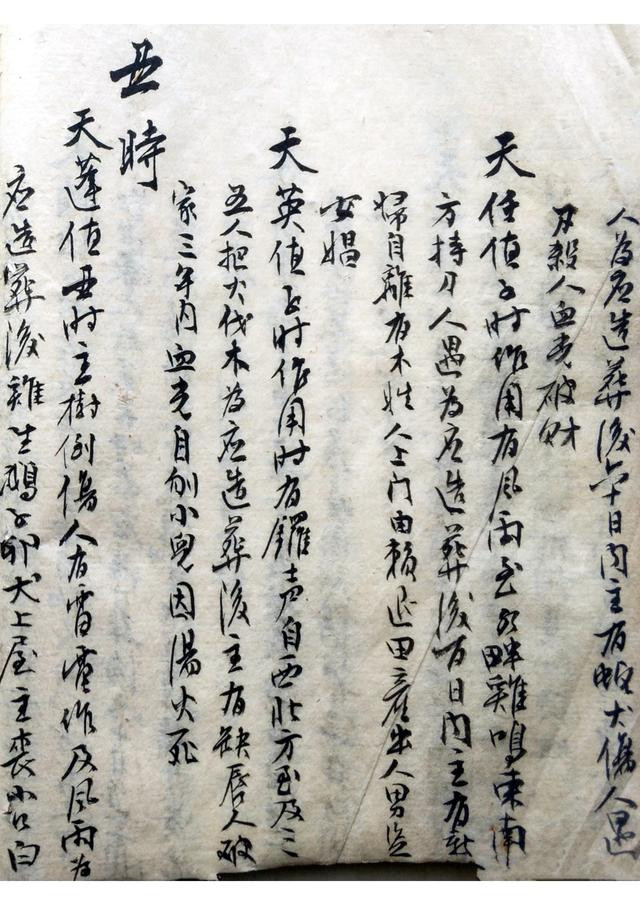 人為应造葬後六十日內主有蛇犬傷人遇
刃殺人血光破財
天任值子时作用有风雨至水畔雞鳴東南
方持刀人遇為应造葬後百日內主有新
婦自離有木姓人上门由賴退田産出人男盗
女娼
天英值子时作用时有鑼声自西北方至及三
五人把火伐木為应造葬後主有缺唇人破
家三年内血光自刎小兒因湯火死
丑時
天蓬值丑时主樹倒傷人有雷電作及风雨為
应造葬後雞生鵝子卵犬上屋主喪小口白